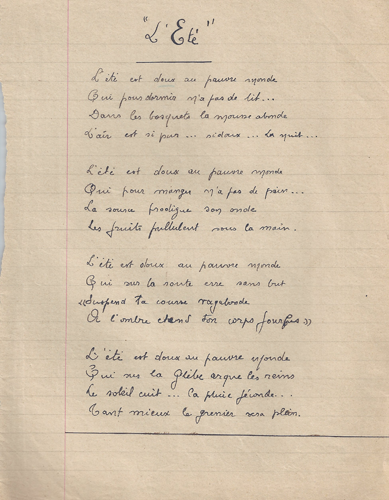 "L'Eté"
L'été est doux au pauvre monde
Qui pour dormir n'a pas de lit...
Dans les bosquets la mousse abonde
L'air est si pur... si doux... la nuit...
L'été est doux au pauvre monde
Qui pour manger n'a pas de pain...
La source prodigue son onde
Les fruits pullulent sous la main.
L'été est doux au pauvre monde
Qui sur la route erre sans but
«Suspend ta course vagabonde
A l'ombre etend ton corps fourbu»
L'été est doux au pauvre monde
Qui sur la Glèbe arque les reins
Le soleil cuit... la pluie féconde...
Tant mieux le grenier sera plein.